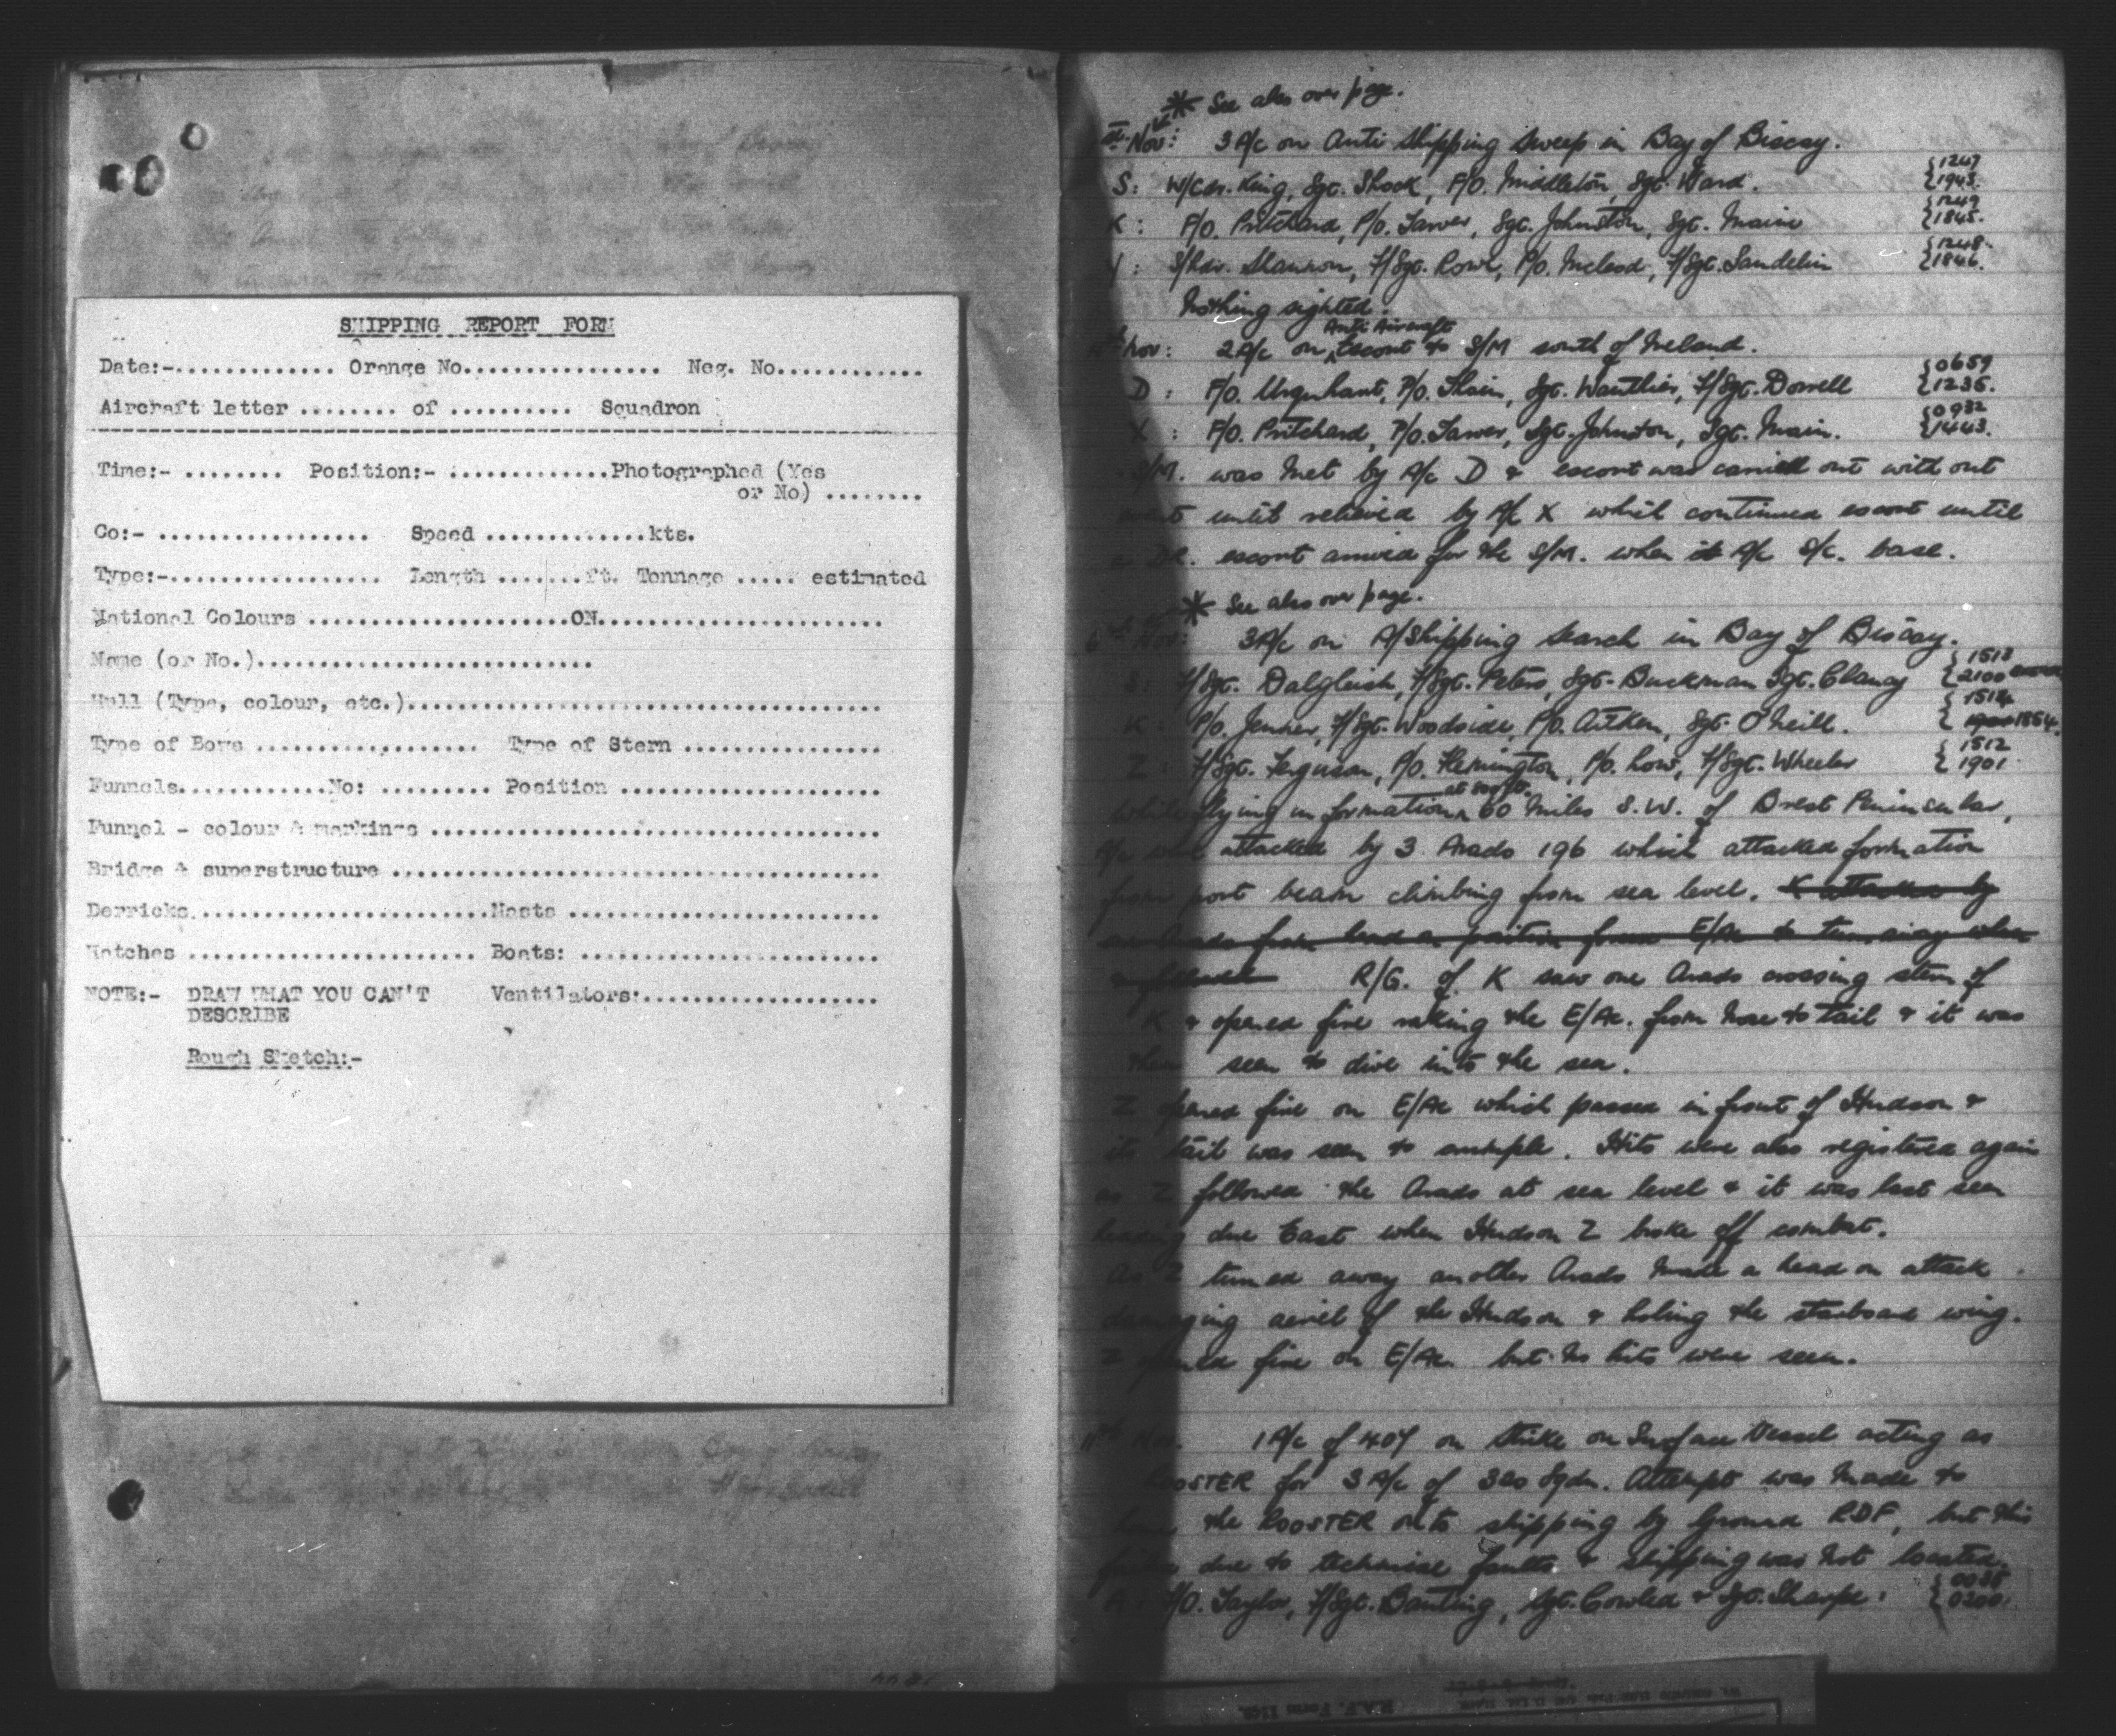 SHIPPING REPORT FORM
Date:-............. Orange No................. Neg. No............
Aircraft letter ........ of .......... Squadron
Time:- ........ Position:- .............Photographed (Yes
or No) ........
Co:- ................. Speed .............kts.
Type:-................. Length ........ft. Tonnage ..... estimated
National Colours .....................ON.......................
Name (or No.)...........................
Hull (Type, colour, etc.)......................................
Type of Bows .................. Type of Stern ................
Funnels............No: ......... Position .....................
Funnel - colour & markings ....................................
Bridge & superstructure .......................................
Derricks........................Masts .........................
Hatches ....................... Boats: ........................
NOTE:- DRAW WHAT YOU CAN'T Ventilators:...................
DESCRIBE
Rough Sketch:-
* See also over page.
Nov: 3 A/c on Anti Shipping Sweep in Bay of Biscay.
S: W/Cdr. King, Sgt. Shook, F/O. Middleton, Sgt. Ward. {1247 1943.
K: P/O. Pritchard, P/O. Tarver, Sgt. Johnston, Sgt. Main {1249 1845.
S/Ldr. Shannon, F/Sgt. Rowe, P/O. McLeod, F/Sgt. Sandelin {1248. 1846.
Nothing sighted.
Nov: 2 A/c on Anti Aircraft Escort to S/M south of Ireland.
D: F/O. Urquhart, P/O. Thain, Sgt. Wauthier, F/Sgt. Dorrell {0659 1235.
X: P/O. Pritchard, P/O. Tarver, Sgt. Johnston, Sgt. Main. {0932 1443.
S/M. was met by A/c D & escort was carried out with out
until relieved by A/c X which continued escort until
a DR. escort arrived for the S/M. when it A/c S/c. base.
* See also over page.
6 Nov: 3 A/c on A/Shipping Search in Bay of Biscay.
S: F/Sgt. Dalgleish, F/Sgt. Peters, Sgt. Buckman Sgt. Clancy {1513 2100
K: P/O. Jenner, F/Sgt. Woodside, P/O. Aitken, Sgt. O'Neill. {1514 1854.
Z: F/Sgt. Ferguson, P/O. Remington, P/O. Low, F/Sgt. Wheeler {1512 1901
While flying in formation at 800 ft. 60 miles S.W. of Brest Peninsular,
A/c were attacked by 3 Arado 196 which attacked formation
from port beam climbing from sea level. K attacked by
R/G. of K saw one Arado crossing stern of
K & opened fire raking the E/Ac. from nose to tail & it was
then seen to dive into the sea.
Z opened fire on E/Ac which passed in front of Hudson &
its tail was seen to crumple. Hits were also registered again
as Z followed the Arado at sea level & it was last seen
heading due East when Hudson Z broke off combat.
As Z turned away another Arado made a head on attack
damaging aeriel of the Hudson & holing the starboard wing.
Z opened fire on E/Ac. but no hits were seen.
11th Nov. 1 A/c of 407 on Strike on Surface Vessel acting as
ROOSTER for 3 A/c of 320 Sqdn. Attempt was made to
home the ROOSTER onto shipping by Ground RDF, but this
failed due to technical faults & shipping was not located.
A: F/O. Taylor, F/Sgt. Banting, Sgt. Cowled & Sgt. Sharpe. {0035 0200.